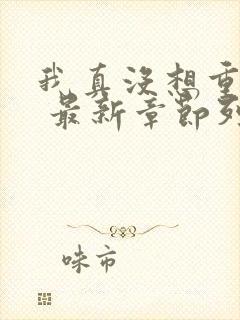 我真没想重
最新章节列
咪市